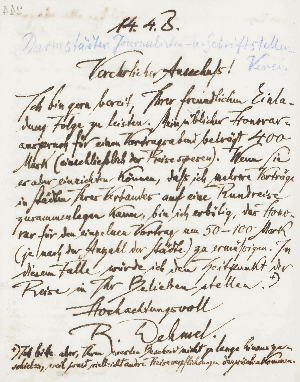 14. 4. 8.
Darmstädter Journalisten- u. Schriftsteller-
Verein
Verehrlicher Ausschuß!
Ich bin gern bereit, Ihrer freundlichen Einla-
dung Folge zu leisten. Mein üblicher Honorar-
anspruch für einen Vortragsabend beträgt 400
Mark (einschließlich der Reisespesen). Wenn Sie
es aber einrichten können, daß ich mehrere Vorträge
in Städten Ihres Verbandes auf eine Rundreise
zusammenlegen kann, bin ich erbötig, das Hono-
rar für den einzelnen Vortrag um 50-100 Mark
(je nach der Anzahl der Städte) zu ermäßigen. In
diesem Falle würde ich den Zeitpunkt der
Reise in Ihr Belieben stellen. *)
Hochachtungsvoll
R. Dehmel.
*) Ich bitte aber, Ihren Bescheid nicht zu lange hinauszu-
schieben, weil sonst vielleicht andre Reiseverpflichtungen